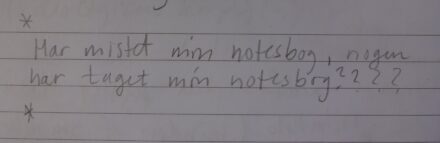 *
Har mistet min notesbog, nogen
har taget min notesbog????
*